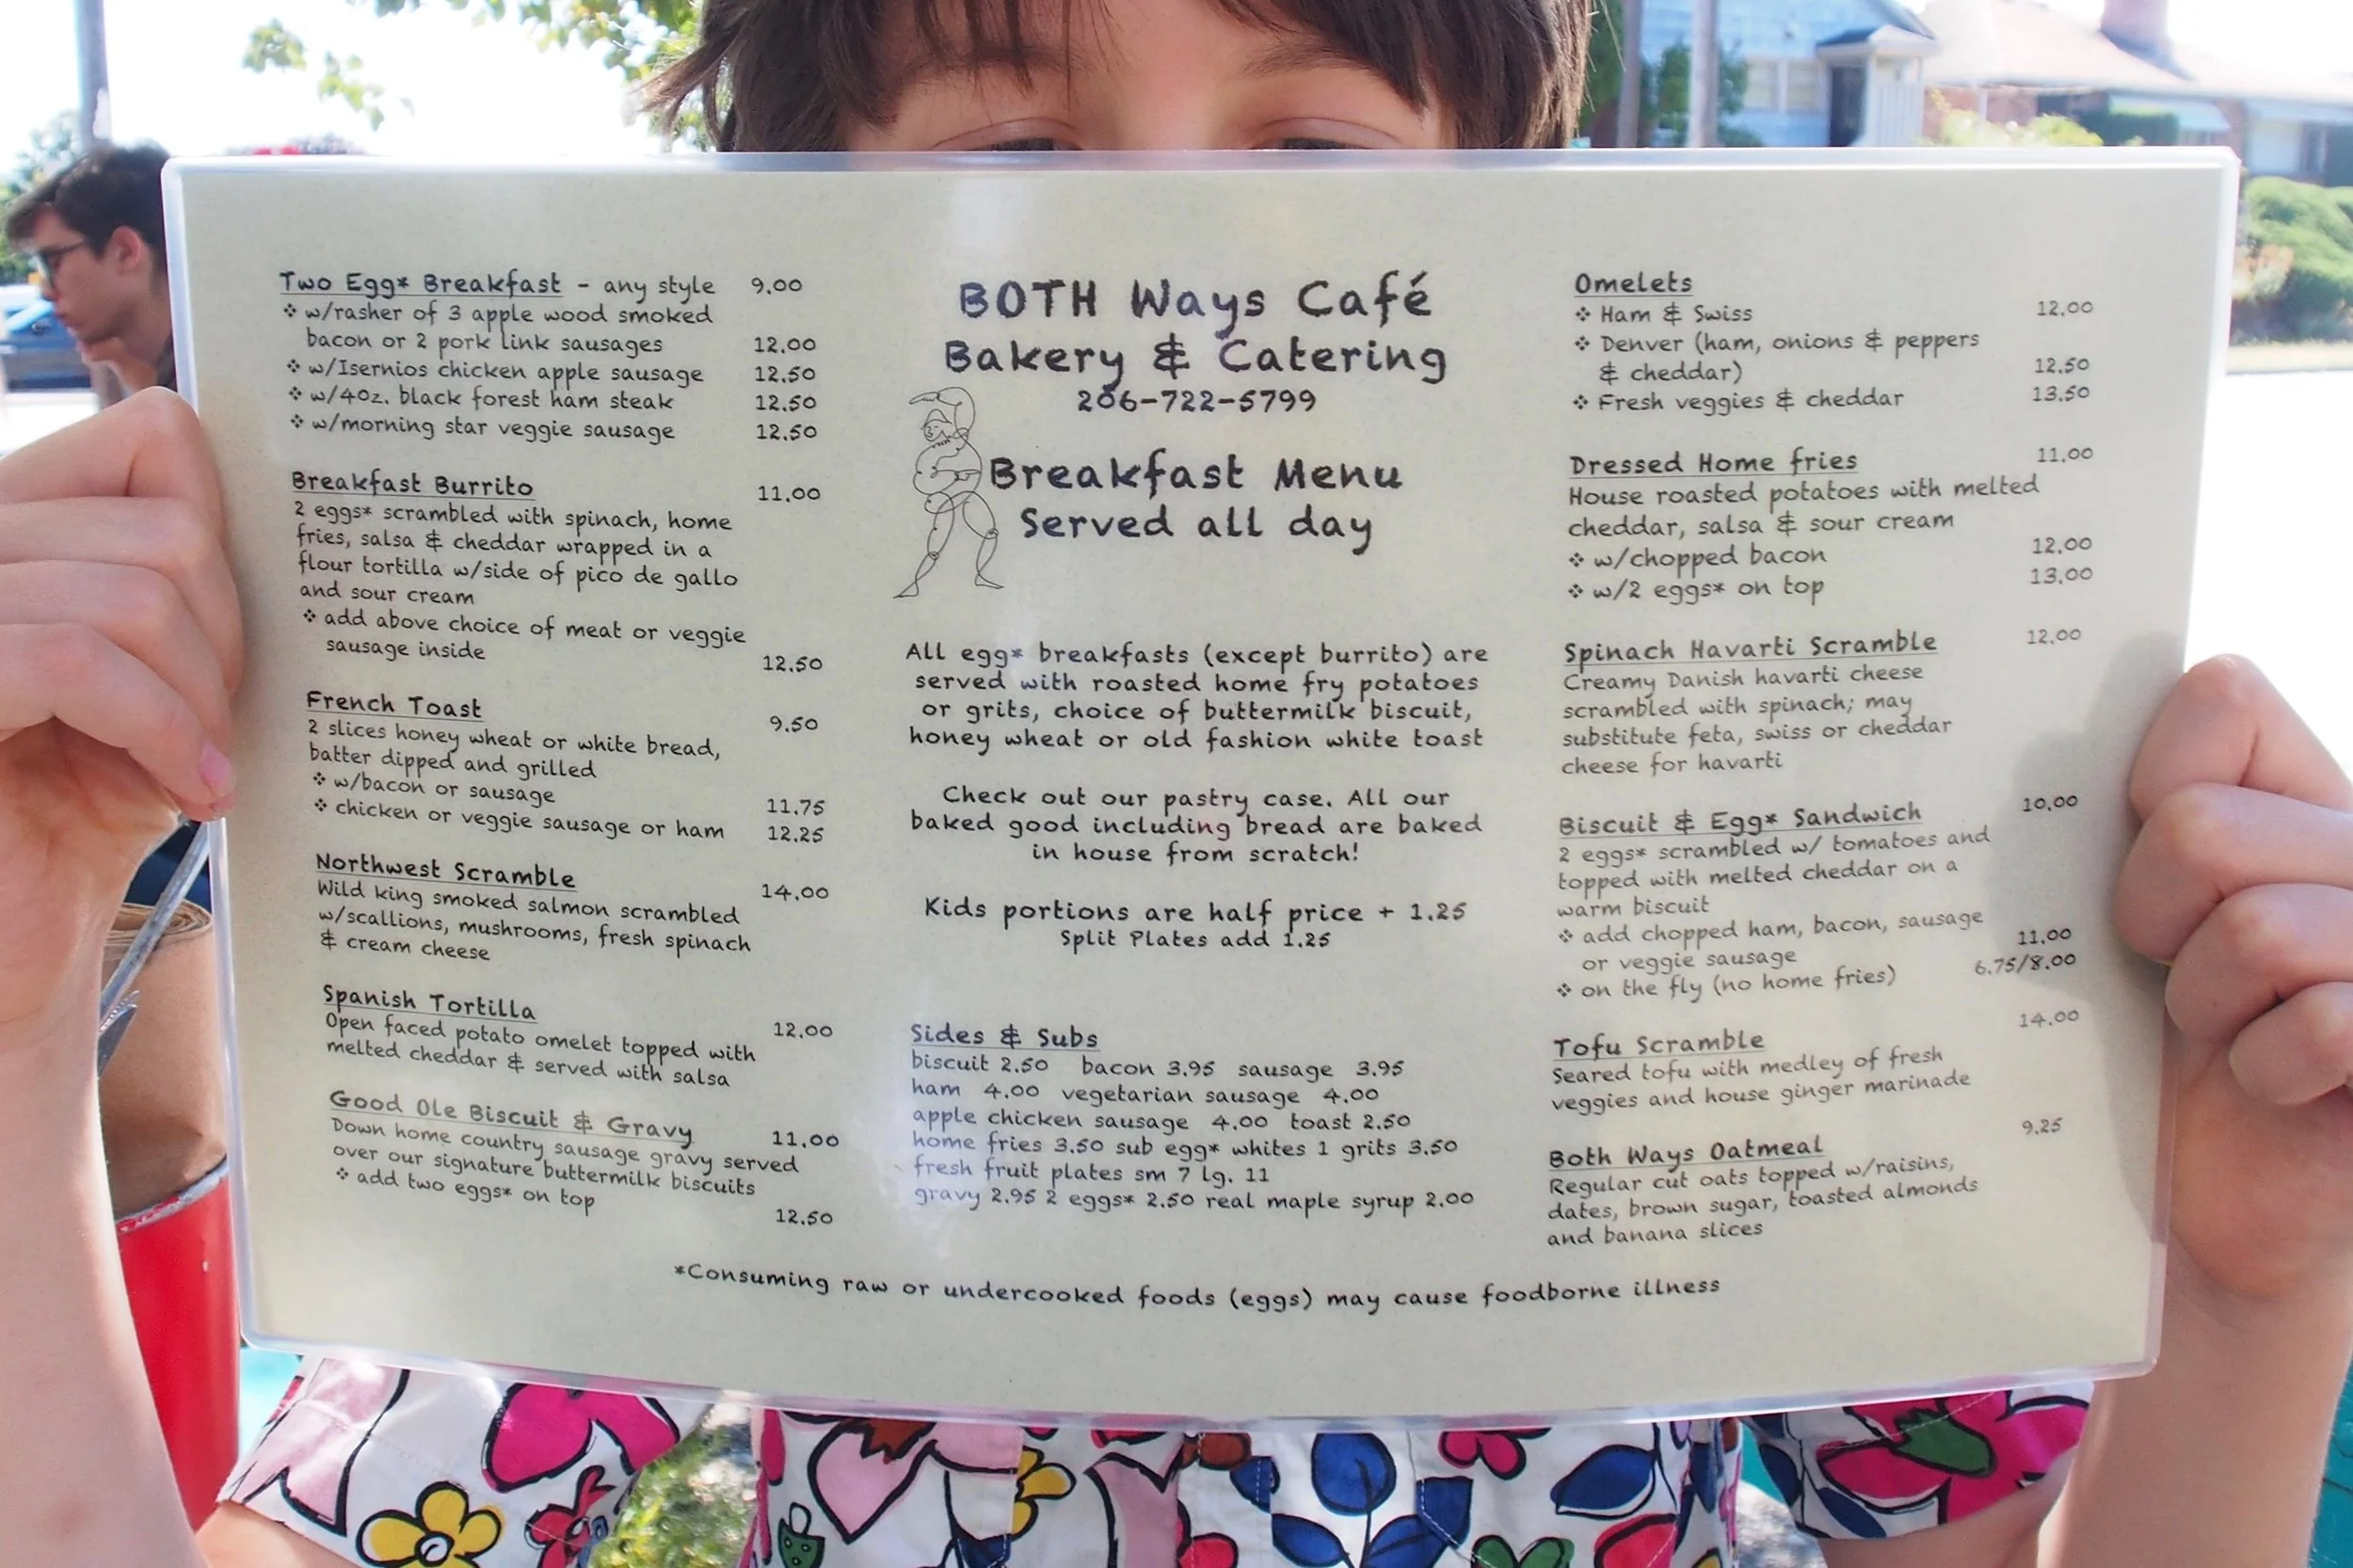 Two Egg* Breakfast - any style 9.00
❖ w/rasher of 3 apple wood smoked
bacon or 2 pork link sausages 12.00
❖ w/Isernios chicken apple sausage 12.50
❖ w/4oz. black forest ham steak 12.50
❖ w/morning star veggie sausage 12.50
Breakfast Burrito 11.00
2 eggs* scrambled with spinach, home
fries, salsa & cheddar wrapped in a
flour tortilla w/side of pico de gallo
and sour cream
❖ add above choice of meat or veggie
sausage inside 12.50
French Toast 9.50
2 slices honey wheat or white bread,
batter dipped and grilled
❖ w/bacon or sausage 11.75
❖ chicken or veggie sausage or ham 12.25
Northwest Scramble 14.00
Wild king smoked salmon scrambled
w/scallions, mushrooms, fresh spinach
& cream cheese
Spanish Tortilla 12.00
Open faced potato omelet topped with
melted cheddar & served with salsa
Good Ole Biscuit & Gravy 11.00
Down home country sausage gravy served
over our signature buttermilk biscuits
❖ add two eggs* on top 12.50
BOTH Ways Café
Bakery & Catering
206-722-5799
Breakfast Menu
Served all day
All egg* breakfasts (except burrito) are
served with roasted home fry potatoes
or grits, choice of buttermilk biscuit,
honey wheat or old fashion white toast
Check out our pastry case. All our
baked good including bread are baked
in house from scratch!
Kids portions are half price + 1.25
Split Plates add 1.25
Sides & Subs
biscuit 2.50 bacon 3.95 sausage 3.95
ham 4.00 vegetarian sausage 4.00
apple chicken sausage 4.00 toast 2.50
home fries 3.50 sub egg* whites 1 grits 3.50
fresh fruit plates sm 7 lg. 11
gravy 2.95 2 eggs* 2.50 real maple syrup 2.00
Omelets
❖ Ham & Swiss 12.00
❖ Denver (ham, onions & peppers
& cheddar) 12.50
❖ Fresh veggies & cheddar 13.50
Dressed Home fries 11.00
House roasted potatoes with melted
cheddar, salsa & sour cream
❖ w/chopped bacon 12.00
❖ w/2 eggs* on top 13.00
Spinach Havarti Scramble 12.00
Creamy Danish havarti cheese
scrambled with spinach; may
substitute feta, swiss or cheddar
cheese for havarti
Biscuit & Egg* Sandwich 10.00
2 eggs* scrambled w/ tomatoes and
topped with melted cheddar on a
warm biscuit
❖ add chopped ham, bacon, sausage
or veggie sausage 11.00
❖ on the fly (no home fries) 6.75/8.00
Tofu Scramble 14.00
Seared tofu with medley of fresh
veggies and house ginger marinade
Both Ways Oatmeal 9.25
Regular cut oats topped w/raisins,
dates, brown sugar, toasted almonds
and banana slices
*Consuming raw or undercooked foods (eggs) may cause foodborne illness